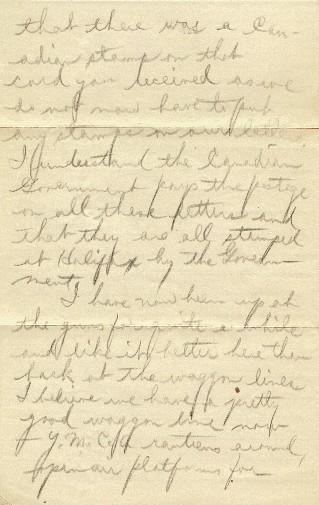 that there was a Can-
adian stamp on that
card you received as we
do not now have to put
any stamps on our letters.
I understand the Canadian
Government pays the postage
on all these letters and
that they are all stamped
at Halifax by the Govern-
ment.
I have now been up at
the guns for quite a while
and like it better here than
back at the waggon lines
I believe we have a pretty
good waggon line now
Y.M.C.A canteens around,
open air platforms for